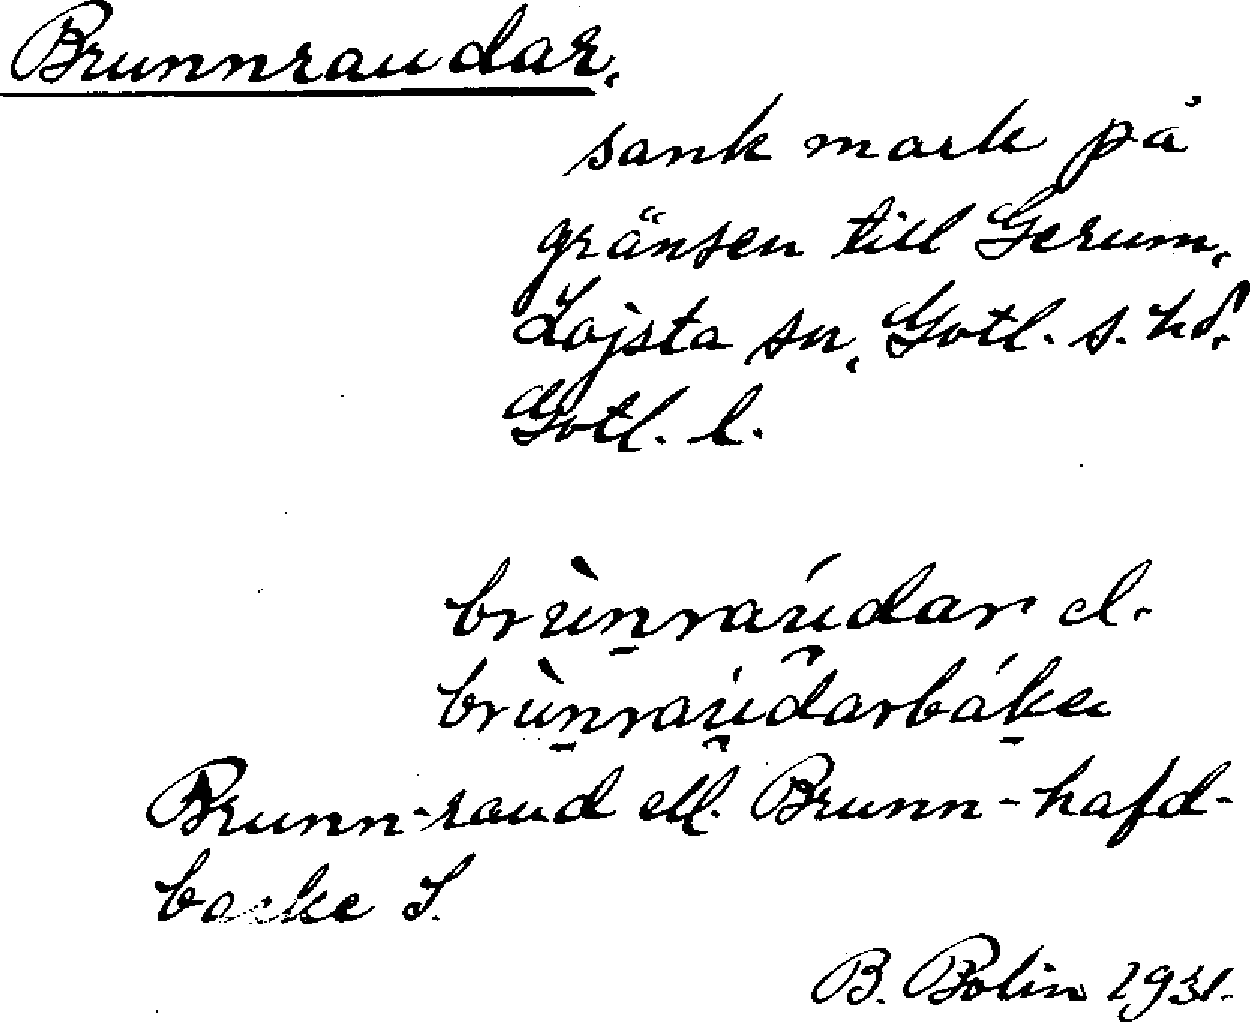 Brunnraudar,
sank mark på
gränsen till Gerum,
Lojsta sn, Gotl. s. hd.
Gotl. l.
brùn̠raú̯dar el.
brùn̠raú̯darbák̠en
Brunn-raud ell. Brunn-hafd-
backe S.
B. Bolin 1931.